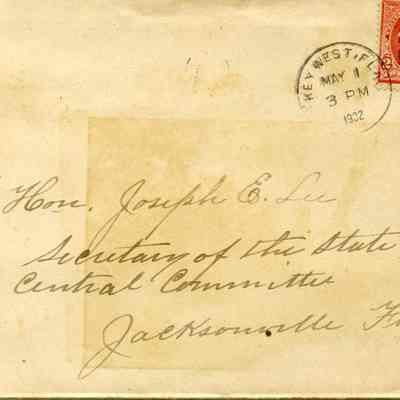 KEY WEST, FLA.
MAY 1
3 PM
1902
Hon. Joseph E. Lee
Secretary of the State
Central Committee
Jacksonville